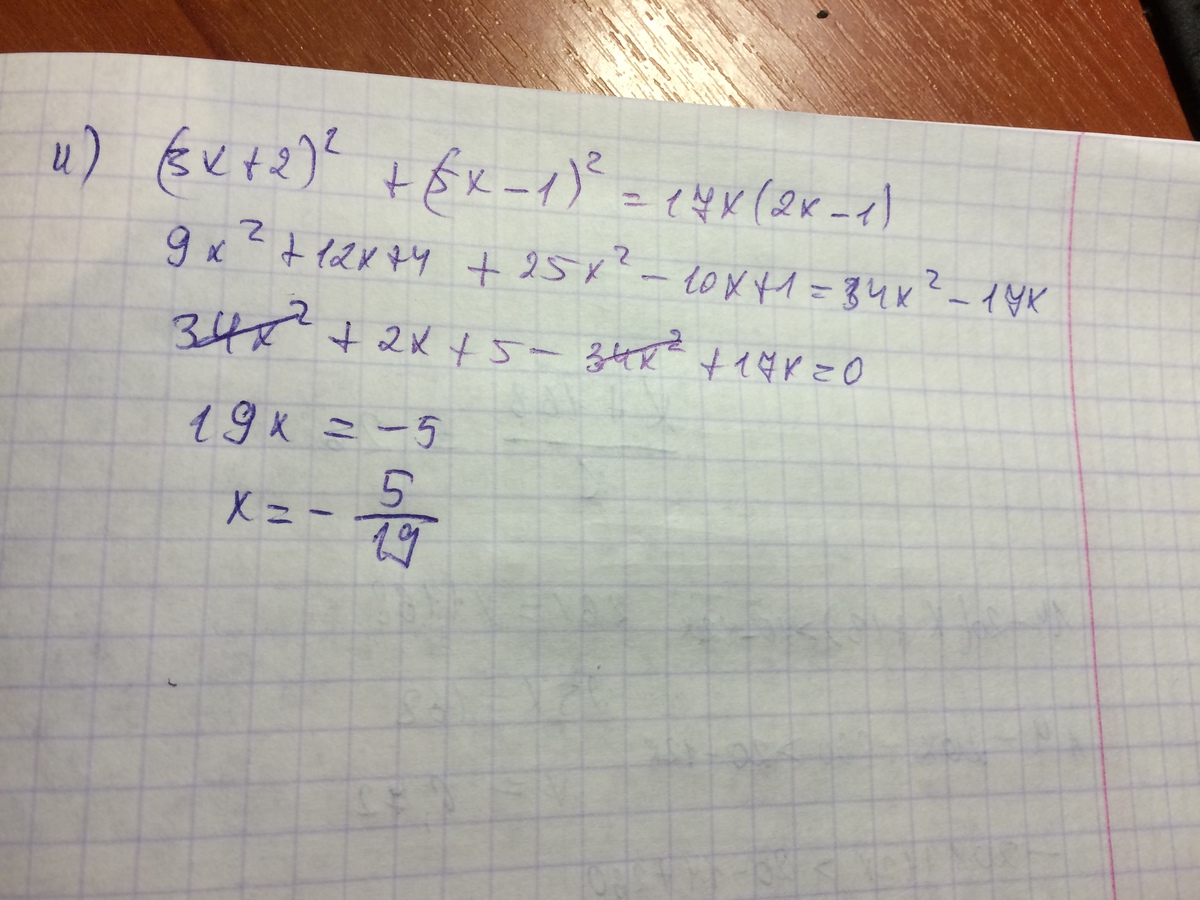 и) (3x+2)² + (5x-1)² = 17x(2x-1)
9x² + 12x+4 + 25x² - 10x+1 = 34x² - 17x
34x² + 2x + 5 - 34x² + 17x = 0
19x = -5
x = - 5/19